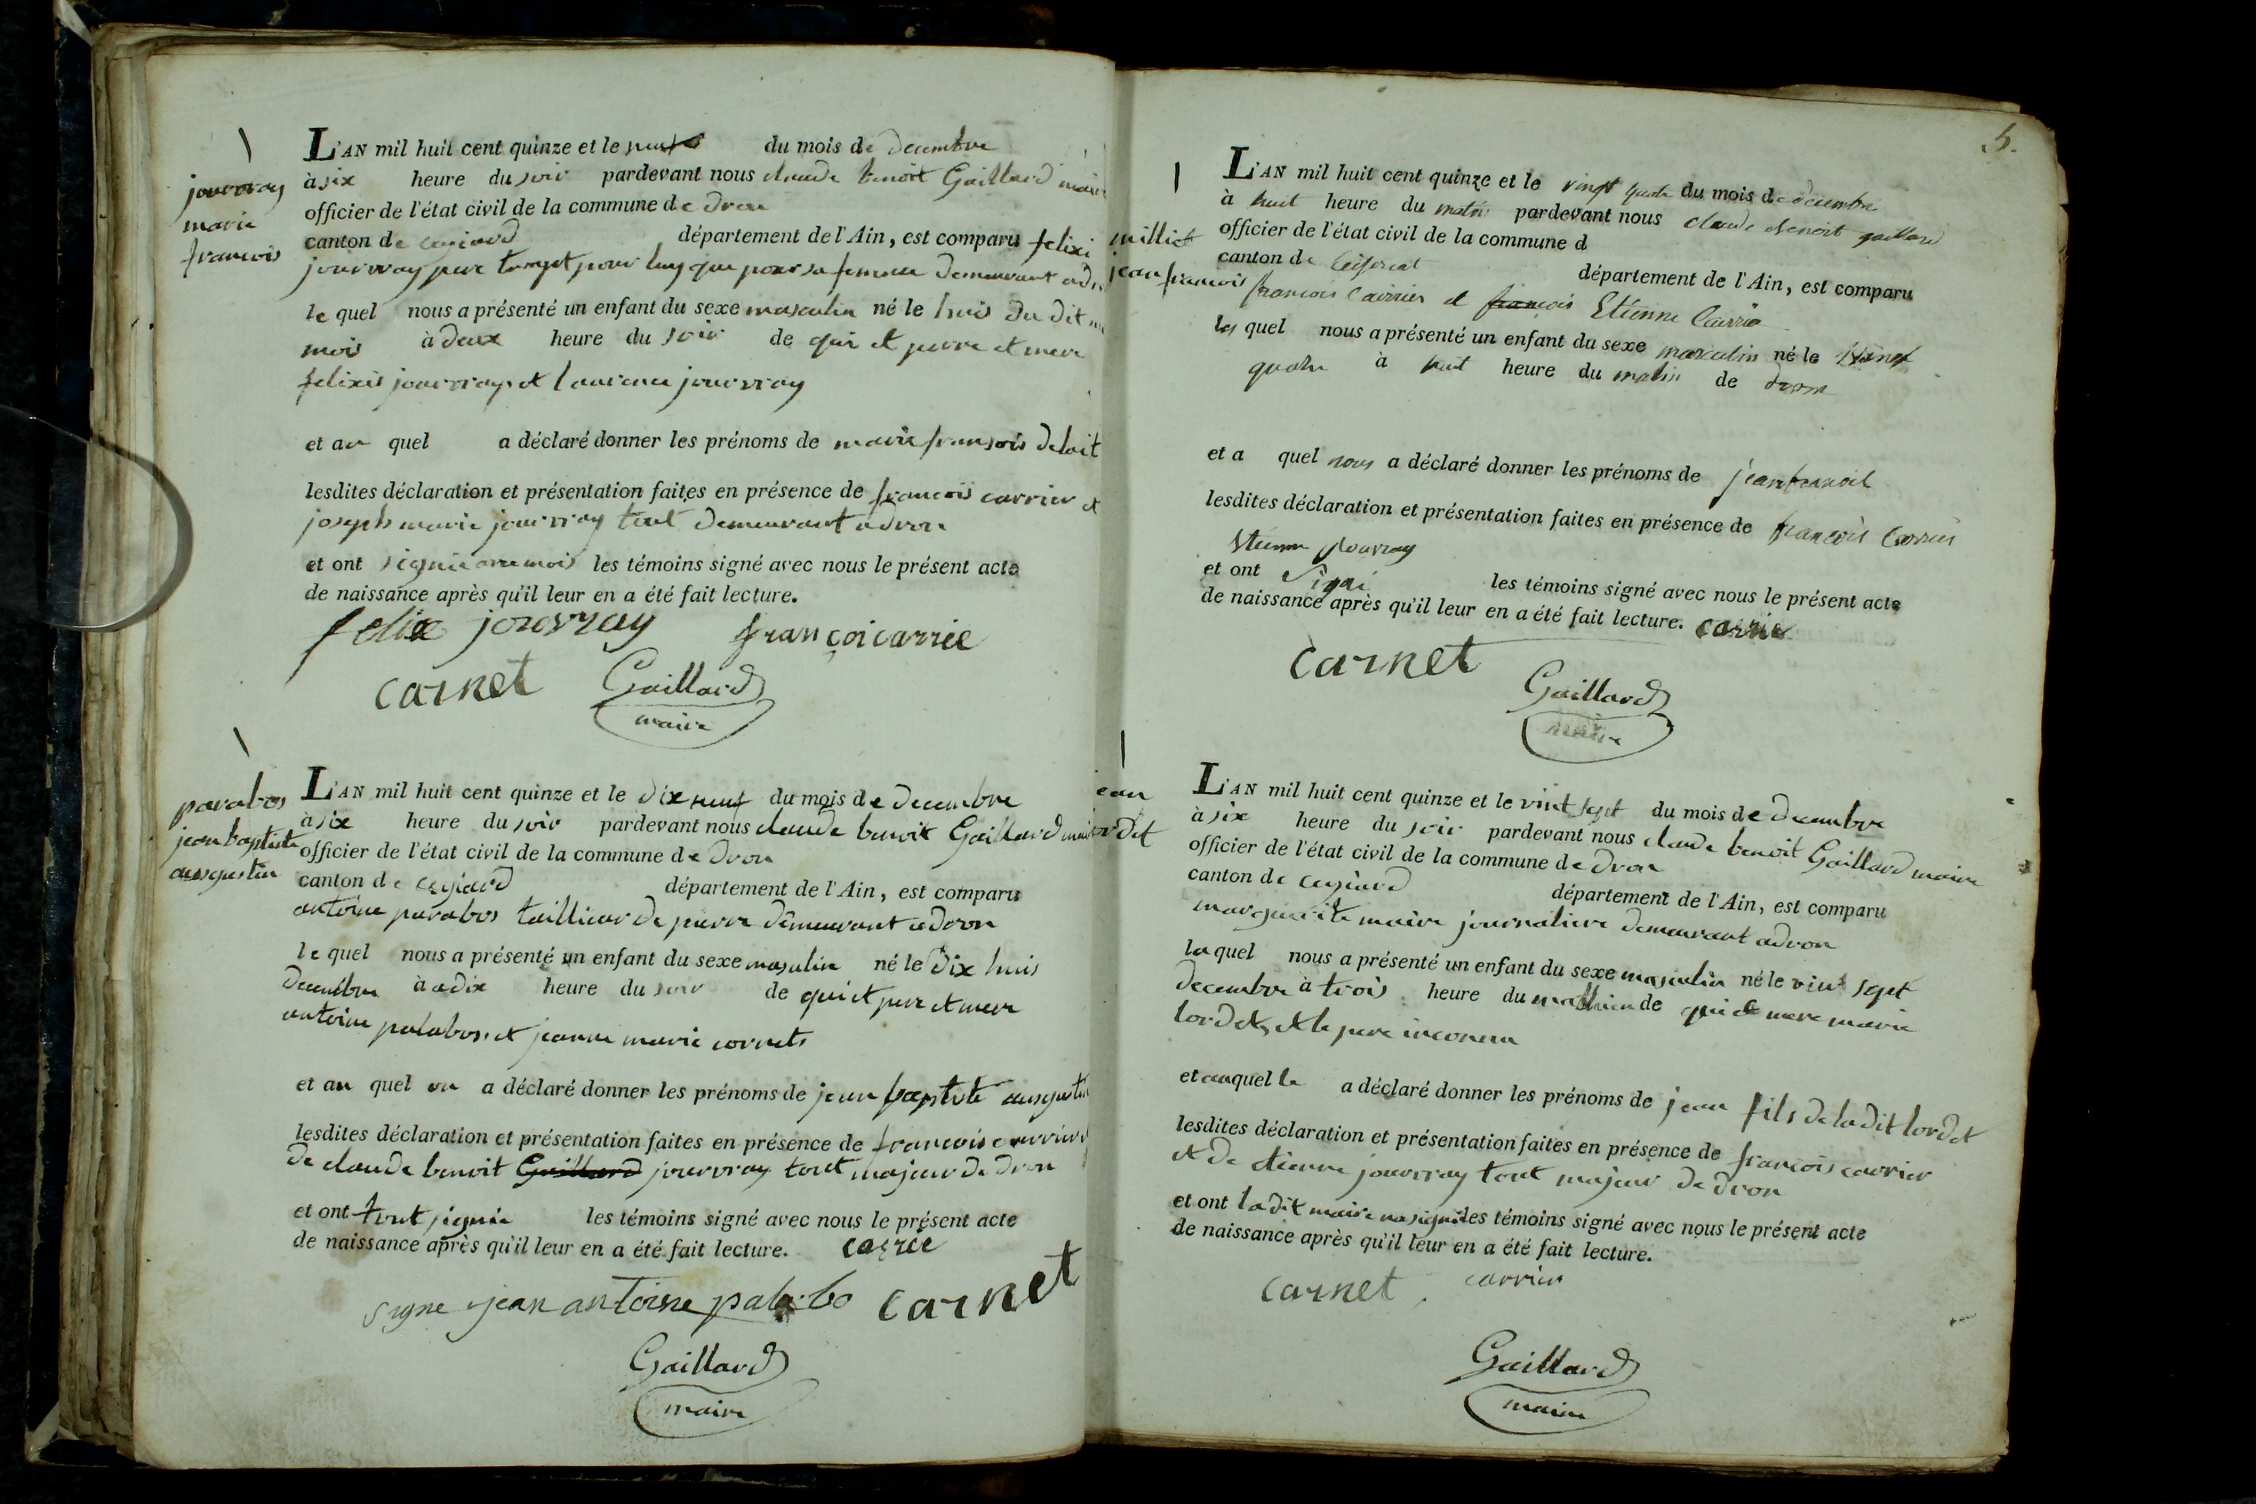 jouvray
marie
francois
L'AN mil huit cent quinze et le neuf du mois de decembre
à six heure du soir pardevant nous claude benoit Gaillard maire
officier de l'état civil de la commune de dron
canton de ceyziard département de l'Ain, est comparu felixi
jouvray pere tangt pour luy que pour sa femme demeurant adr
le quel nous a présenté un enfant du sexe masculin né le huis du dit
mois à deux heure du soir de qui et perre et mere
felixis jouvray et laurence jouvray
et au quel a déclaré donner les prénoms de marie fransois de loit
lesdites déclaration et présentation faites en présence de francois carrier et
joseph marie jouvray tout demeurant a dron
et ont signie les témoins signé avec nous le présent acte
de naissance après qu'il leur en a été fait lecture.
felix jouvray françoi carrie
carnet Gaillard
maire
parabos
jean baptiste
ausgustin
L'AN mil huit cent quinze et le dix neuf du mois de decembre
à six heure du soir pardevant nous claude benoit Gaillard mair
officier de l'état civil de la commune de dron
canton de ceyziard département de l'Ain, est comparu
antoine parabos taillieur de pierre demeurant a dron
le quel nous a présenté un enfant du sexe masculin né le dix huis
decembre à a dix heure du soir de qui et pere et mere
antoine palabos et jeanne marie cornets
et au quel on a déclaré donner les prénoms de jean baptiste ausgustin
lesdites déclaration et présentation faites en présence de francois carrier
de claude benoit Gaillard jouvray tout majeur de dron
et ont tout signie les témoins signé avec nous le présent acte
de naissance après qu'il leur en a été fait lecture. carrie
signe jean antoine palabo carnet
Gaillard
maire
5.
milliet
jean francois
L'AN mil huit cent quinze et le vingt quatre du mois de decembre
à huit heure du matin pardevant nous claude benoit gaillard
officier de l'état civil de la commune d
canton de département de l'Ain, est comparu
francois Carrier et francois Etienne Carrie
les quel nous a présenté un enfant du sexe masculin né le vingt
quatre à huit heure du matin de dron
et a quel nous a déclaré donner les prénoms de jean francois
lesdites déclaration et présentation faites en présence de francois Carrier
Etienne jouvray
et ont signé les témoins signé avec nous le présent acte
de naissance après qu'il leur en a été fait lecture. carrie
carnet
Gaillard
maire
jean
lordet
L'AN mil huit cent quinze et le vint sept du mois de decembre
à six heure du soir pardevant nous claude benoit Gaillard maire
officier de l'état civil de la commune de dron
canton de ceyziard département de l'Ain, est comparu
marguerite maire journaliere demeurant a dron
la quel nous a présenté un enfant du sexe masculin né le vint sept
decembre à trois heure du mathien de qui et mere marie
lordet et le pere inconnu
et auquel le a déclaré donner les prénoms de jean fils de la dit lordet
lesdites déclaration et présentation faites en présence de francois carrier
et de etienne jouvray tout majeur de dron
et ont la dit maire na signé les témoins signé avec nous le présent acte
de naissance après qu'il leur en a été fait lecture.
carnet carrier
Gaillard
maire